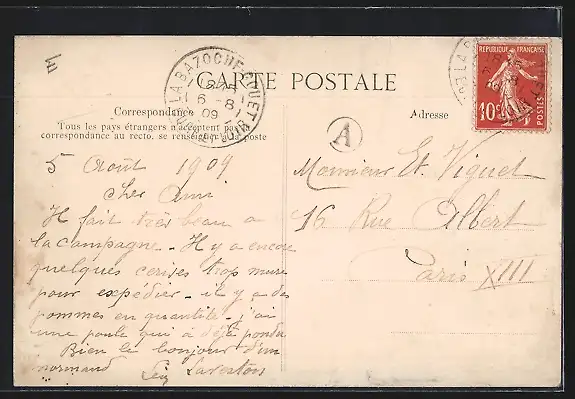 CARTE POSTALE
Correspondance
Tous les pays étrangers n'acceptent pas la
correspondance au recto. se renseigner à la poste
Adresse
RÉPUBLIQUE FRANÇAISE
10c
POSTES
LA BAZOCHE-GOUET
6-8
09
A
5 Août 1909
Cher Ami
Il fait très beau a
la campagne - Il y a encore
quelques cerises trop mure
pour expédier - il y a des
pommes en quantité - j'ai
une poule qui à déjà pondu
Bien le bonjour d'un
normand
Monsieur Et. Viguet
16 Rue Albert
Paris XIII